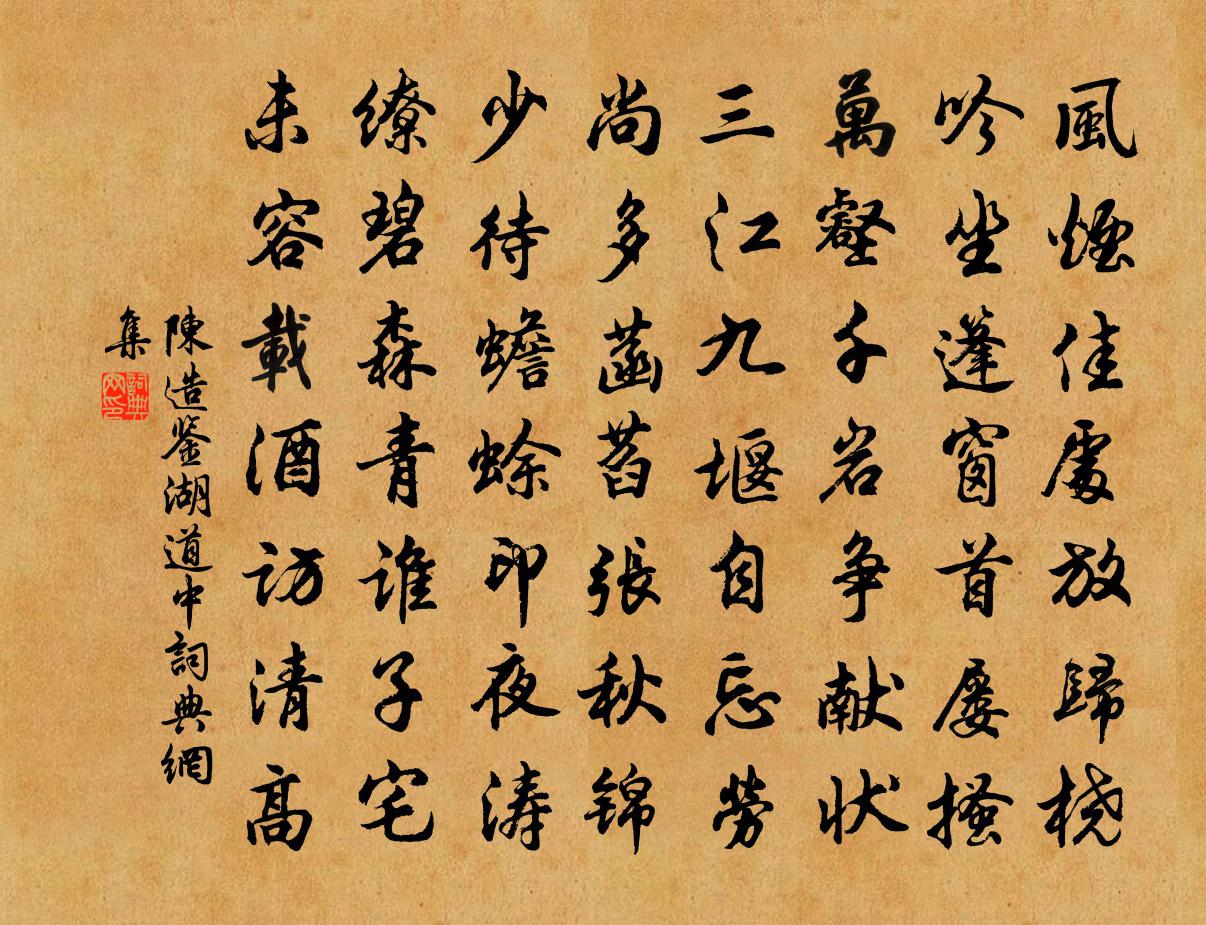 風煙佳處放歸橈
吟坐蓬窗首屢搔
萬壑千岩争献状
三江九堰自忘勞
尚多菡萏張秋錦
少待蟾蜍印夜濤
繚碧森青誰子宅
未容載酒訪清高
陳造鉴湖道中詞典網
集
詞典
网印